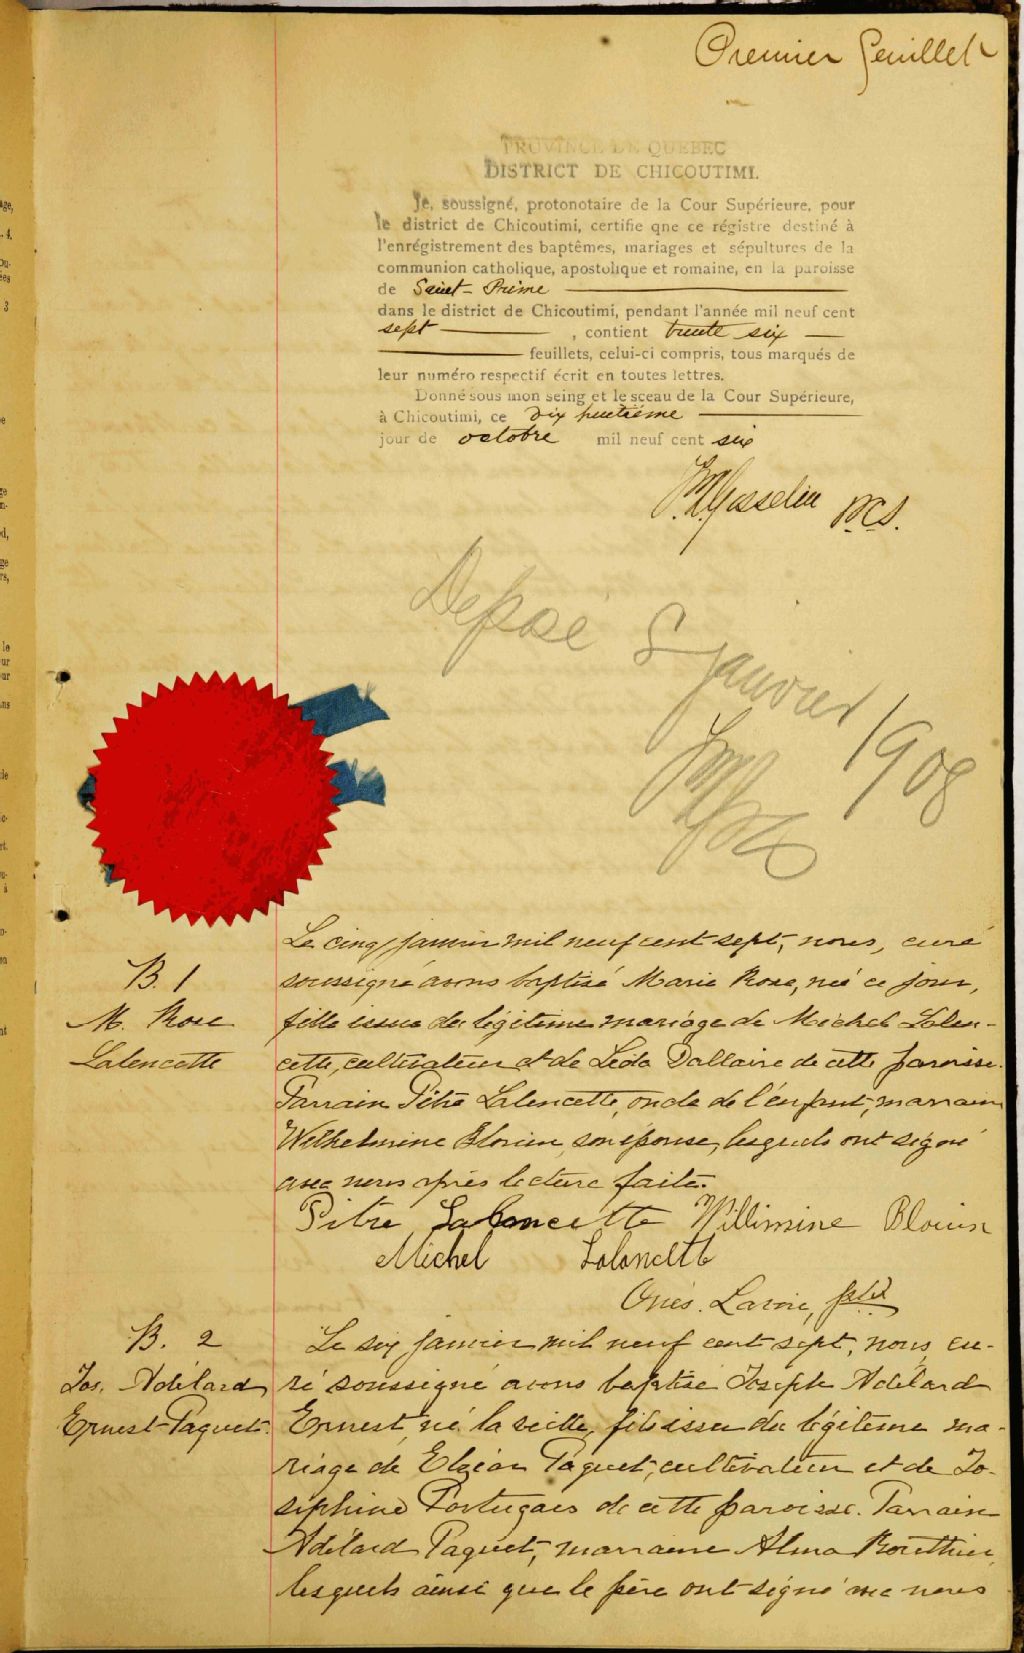 Premier feuillet
PROVINCE DE QUEBEC
DISTRICT DE CHICOUTIMI.
Je, soussigné, protonotaire de la Cour Supérieure, pour
le district de Chicoutimi, certifie qne ce régistre destiné à
l'enrégistrement des baptêmes, mariages et sépultures de la
communion catholique, apostolique et romaine, en la paroisse
de Saint-Prime
dans le district de Chicoutimi, pendant l'année mil neuf cent
sept , contient trente six
feuillets, celui-ci compris, tous marqués de
leur numéro respectif écrit en toutes lettres.
Donné sous mon seing et le sceau de la Cour Supérieure,
à Chicoutimi, ce dix huitième
jour de octobre mil neuf cent six
Gosselin P.C.S.
Déposé 8 janvier 1908
B. 1
M. Rose
Laloncette
Le cinq janvier mil neuf cent sept, nous, curé
soussigné avons baptisé Marie Rose, née ce jour,
fille issue du légitime mariage de Michel Lalon-
cette, cultivateur et de Léda Dallaire de cette paroisse.
Parrain Pitre Laloncette, oncle de l'enfant, marraine
Wilhelmine Blouin, son épouse, lesquels ont signé
avec nous après lecture faite.
Pitre Laloncette Willimine Blouin
Michel Laloncette
Onés. Lavoie, ptre
B. 2
Jos. Adélard
Ernest Paquet.
Le six janvier mil neuf cent sept, nous, cu-
ré soussigné avons baptisé Joseph Adélard
Ernest, né la veille, fils issu du légitime ma-
riage de Elzéar Paquet, cultivateur et de Jo-
séphine Portugais de cette paroisse. Parrain
Adélard Paquet, marraine Alma Routhier,
lesquels ainsi que le père ont signé avec nous